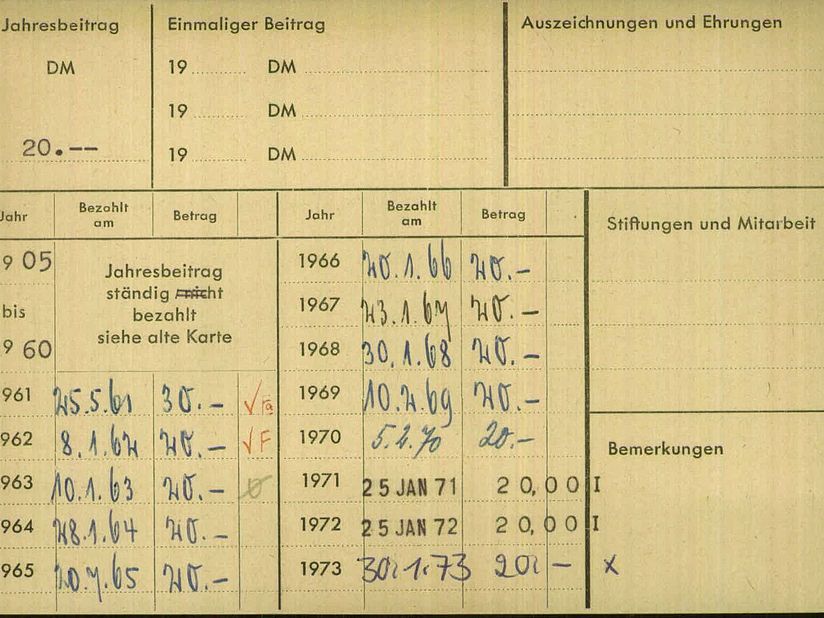 Jahresbeitrag
DM
20.--
Einmaliger Beitrag
19 DM
19 DM
19 DM
Auszeichnungen und Ehrungen
Jahr Bezahlt am Betrag
9 05
bis
9 60
Jahresbeitrag
ständig nicht
bezahlt
siehe alte Karte
961 25.5.61 30.-
962 8.1.62 20.- F
963 10.1.63 20.-
964 28.1.64 20.-
965 20.-
Jahr Bezahlt am Betrag
1966 20.1.66 20.-
1967 23.1.67 20.-
1968 30.1.68 20.-
1969 10.2.69 20.-
1970 5.2.70 20.-
1971 25 JAN 71 20,00 I
1972 25 JAN 72 20,00 I
1973 30.1.73 20.- x
Stiftungen und Mitarbeit
Bemerkungen